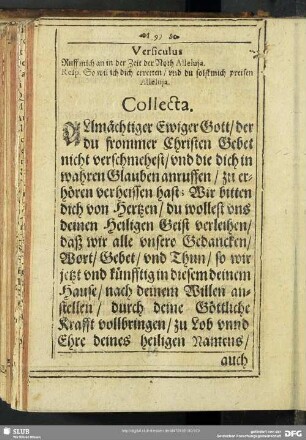 9
Versiculus
Ruff mich an in der Zeit der Noth Alleluja.
Resp. So wil ich dich erretten / vnd du solst mich preisen
Alleluja.
Collecta.
ALlmächtiger Ewiger Gott / der
du frommer Christen Gebet
nicht verschmehest / vnd die dich in
wahren Glauben anruffen / zu er-
hören verheissen hast: Wir bitten
dich von Hertzen / du wollest vns
deinen Heiligen Geist verleihen /
daß wir alle vnsere Gedancken /
Wort / Gebet / vnd Thun / so wir
jetzt vnd künfftig in diesem deinem
Hause / nach deinem Willen an-
stellen / durch deine Göttliche
Krafft vollbringen / zu Lob vnnd
Ehre deines heiligen Namens /
auch
SLUB
DFG